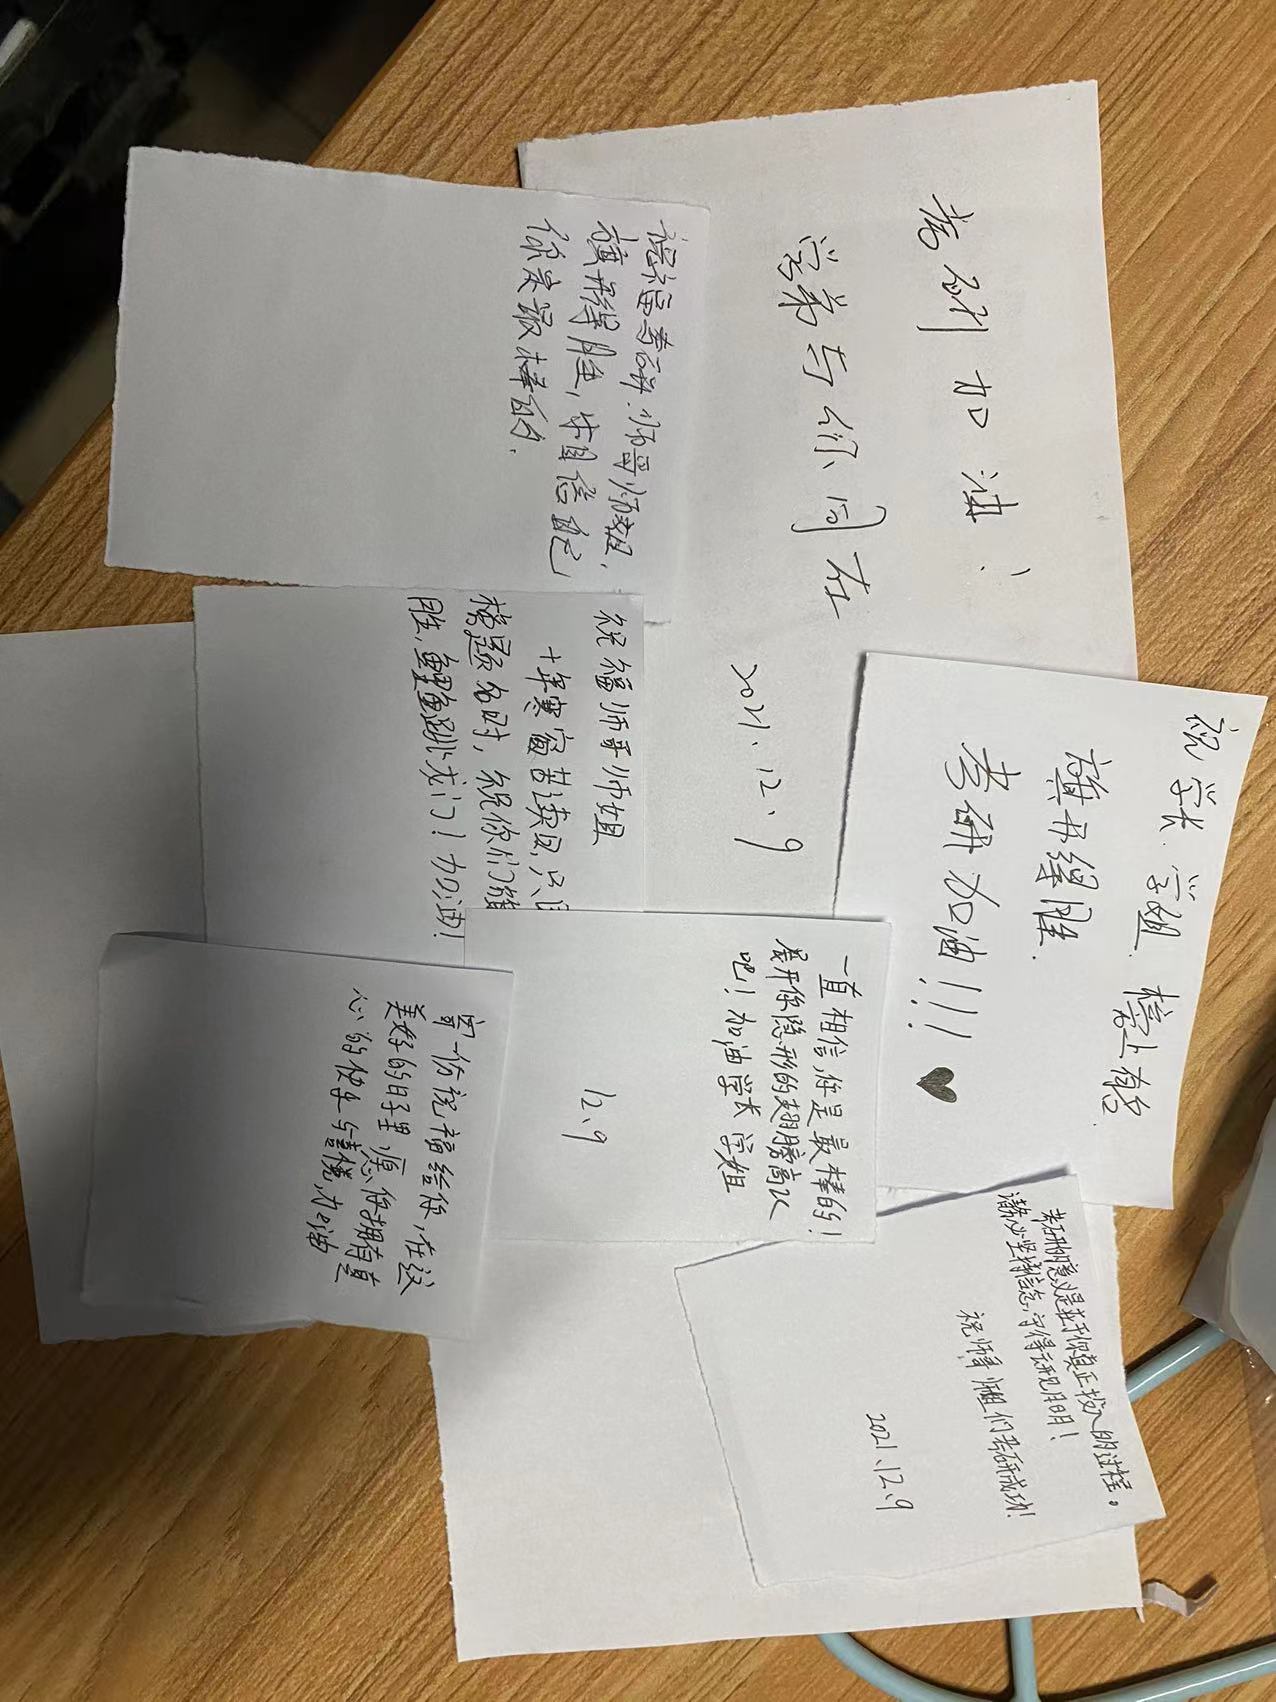 考研加油！
学弟与你们同在
2021.12.9
祝福考研师哥师姐，
旗开得胜，相信自己，
你是最棒的.
祝学长学姐榜上有名
旗开得胜
考研加油!!!
祝福师哥师姐
十年寒窗苦读日,只
榜题名时，祝你们旗
胜,鲤鱼跳龙门！加油！
一直相信,你是最棒的！
展开你隐形的翅膀高飞
吧！加油学长学姐
12.9
寄一份祝福给你，在这
美好的日子里,愿你拥有真
心的快乐与喜悦,加油
考研的意义是在于你真正投入的过程。
请务必坚持信念,守得云开见月明！
祝师哥师姐们考研成功！
2021.12.9